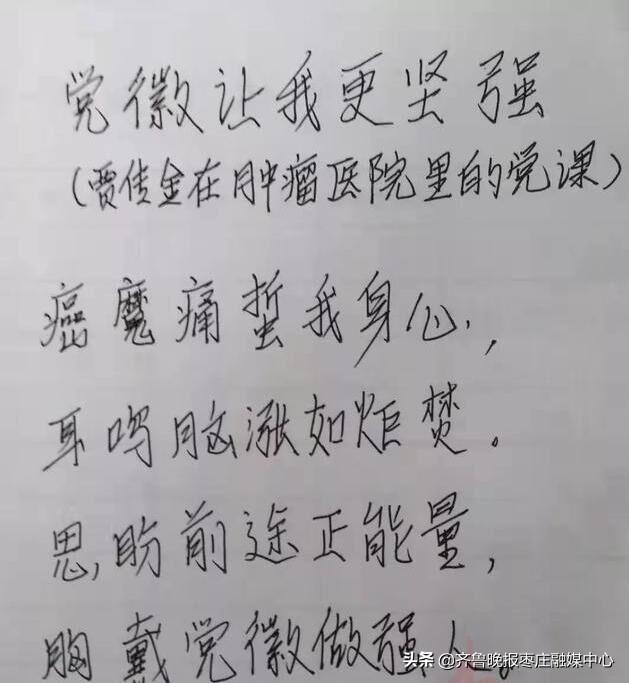 党徽让我更坚强
(贾传金在肿瘤医院里的党课)
癌魔痛蜇我身心,
耳鸣脑涨如炬焚。
思盼前途正能量,
胸戴党徽做强人。
头条 @齐鲁晚报枣庄融媒中心